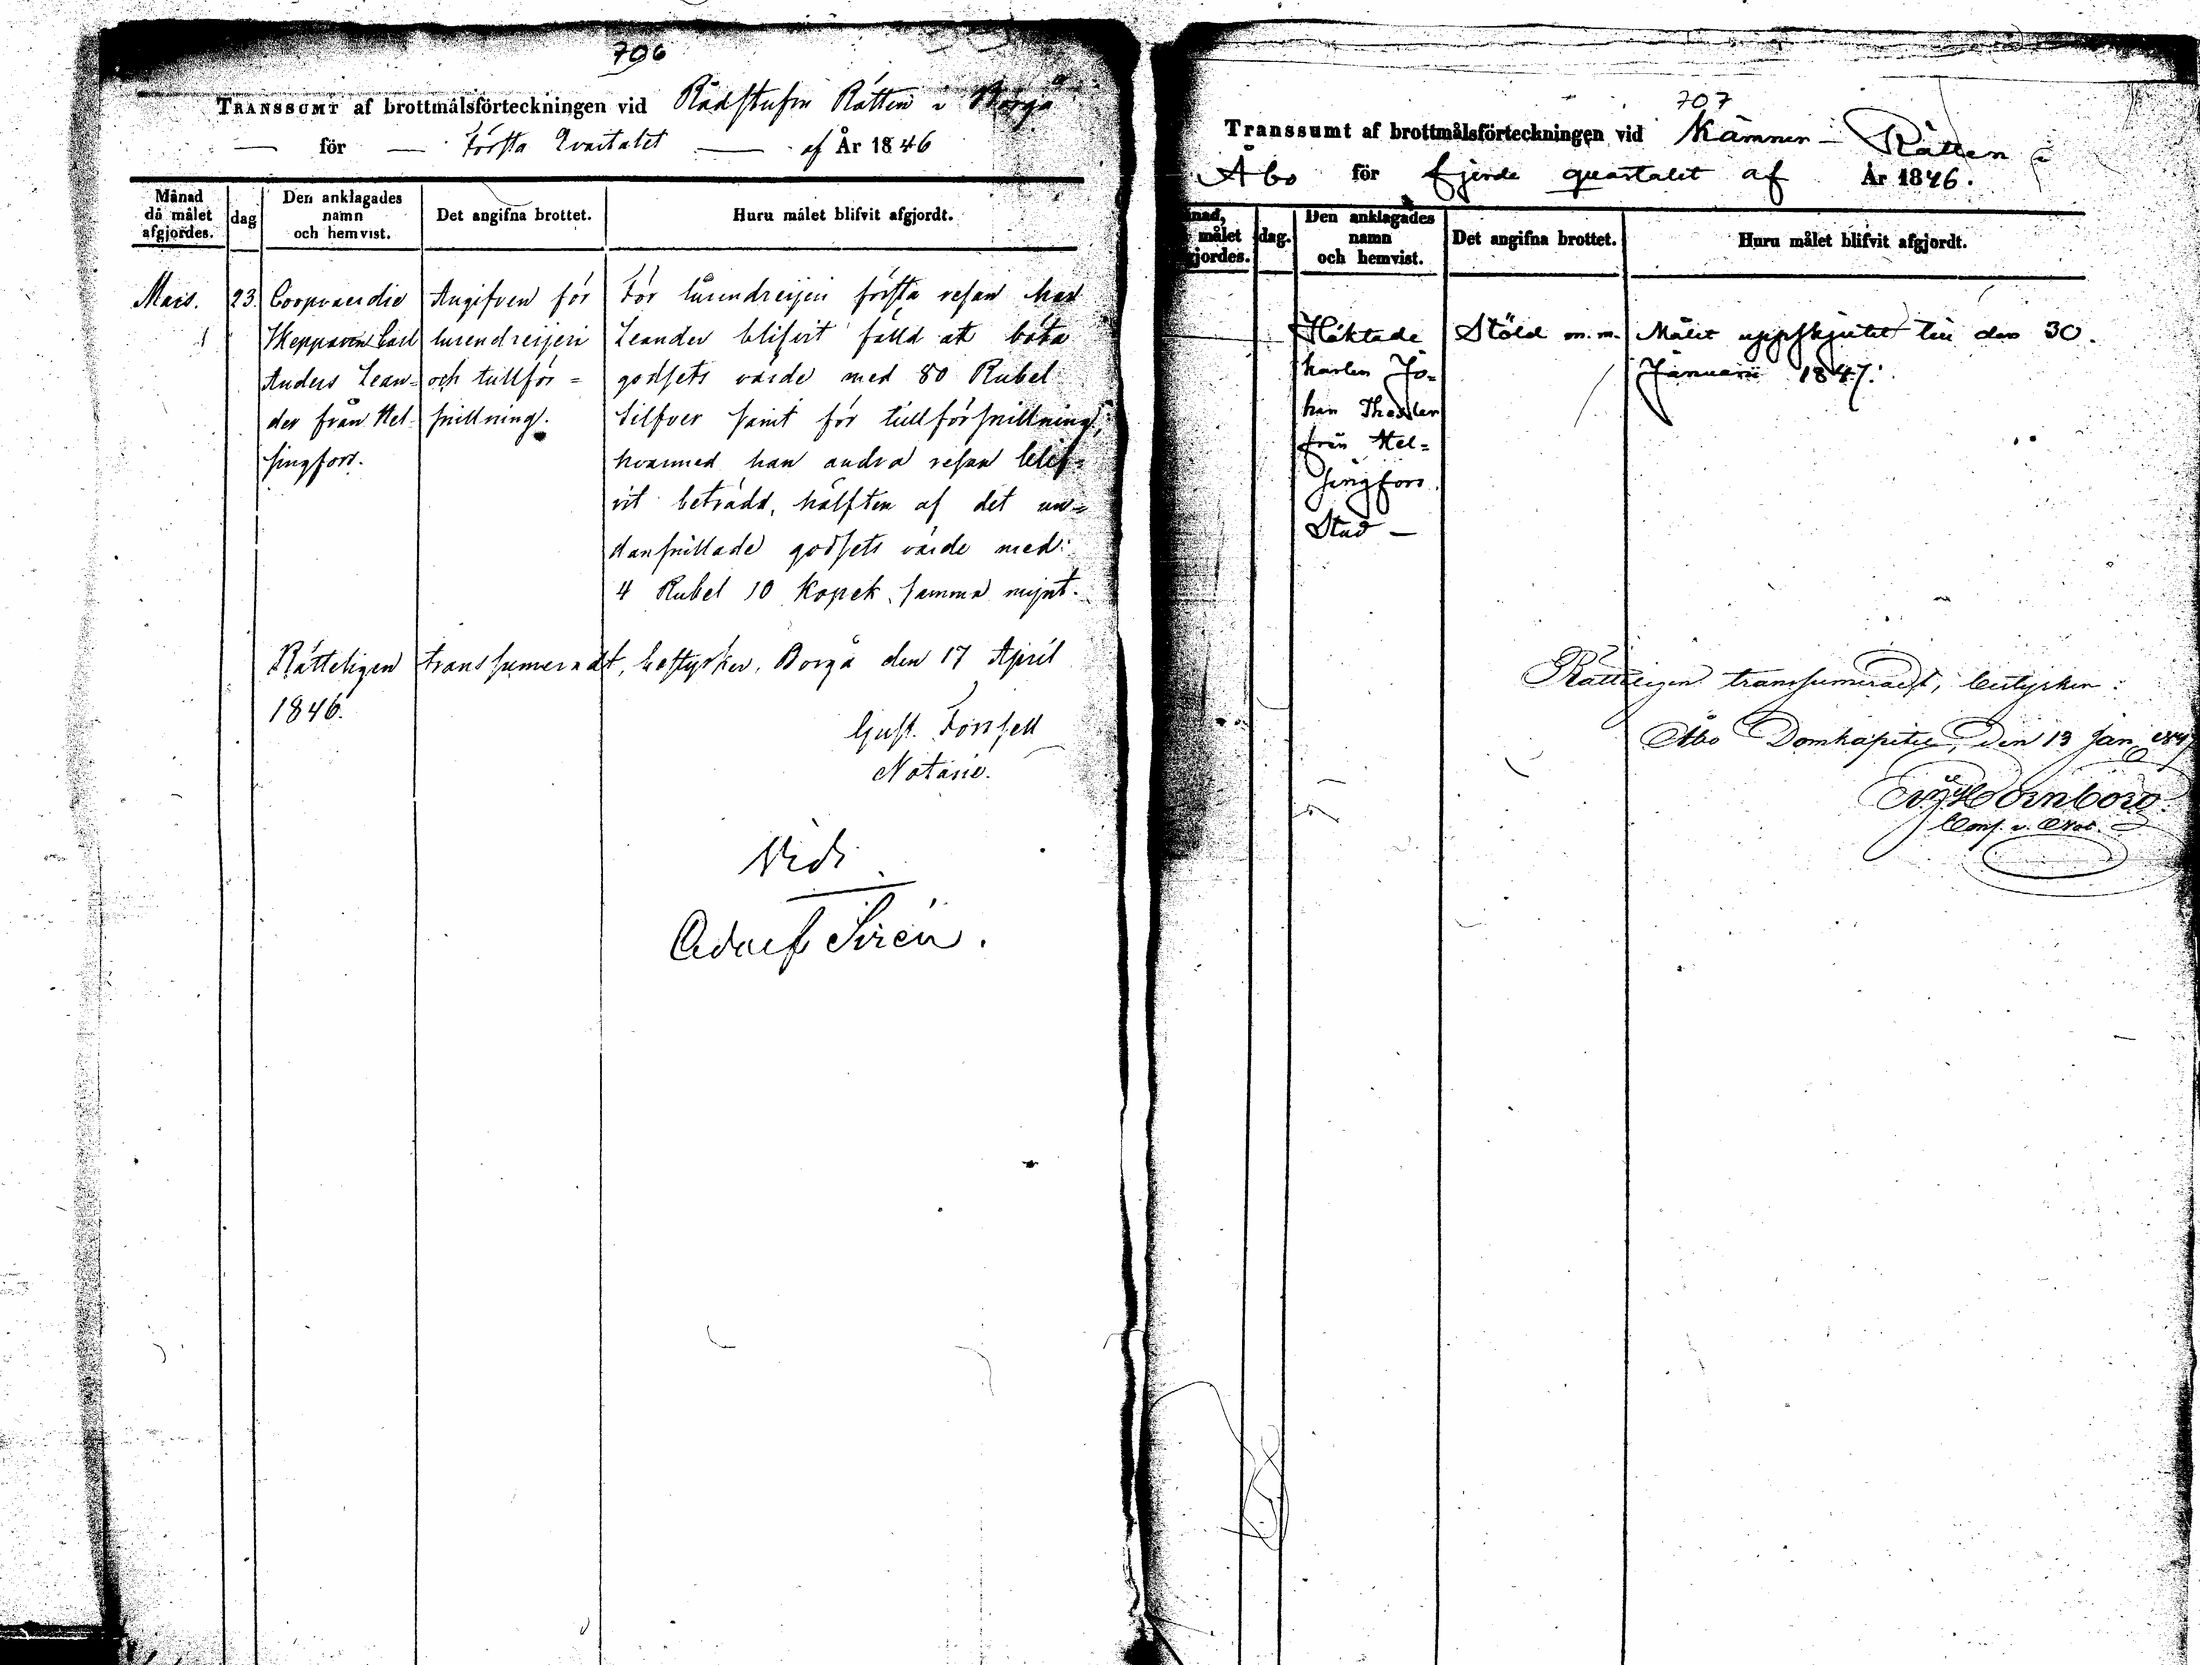 706
TRANSSUMT af brottmålsförteckningen vid Rådstufvu Rätten i Borgå
för Första Qvartalet af År 1846
Månad
då målet
afgjordes.
dag
Den anklagades
namn
och hemvist.
Det angifna brottet.
Huru målet blifvit afgjordt.
Mars.
23.
Coopvaerdie
Skepparen Carl
Anders Lean-
der från Hel-
singfors.
Angifven för
lurendreijeri
och tullför=
snillning.
För lurendreijeri första resan har
Leander blifvit fälld att böta
godsets värde med 80 Rubel
Silfver samt för tullförsnillning,
hvarmed han andra resan blif-
vit beträdd, hälften af det un-
dansnillade godsets värde med
4 Rubel 10 Kopek samma mynt.
Rätteligen transsumeradt, bestyrker, Borgå den 17 April
1846.
Gust. Forssell
Notarie.
Vidi
Adolf Sirén.
707
Transsumt af brottmålsförteckningen vid Kämners-Rätten i
Åbo för fjerde quartalet af År 1846.
nad,
målet
gjordes.
dag.
Den anklagades
namn
och hemvist.
Det angifna brottet.
Huru målet blifvit afgjordt.
Häktade
karlen Jo-
han
från Hel=
singfors
Stad —
Stöld m.m.
Målet uppskjutet till den 30.
Januarii 1847.
Rätteligen transsumeradt, bestyrker:
Åbo Domkapitel, den 13 Jan 1847
Hornborg.
Cons. o. Not.